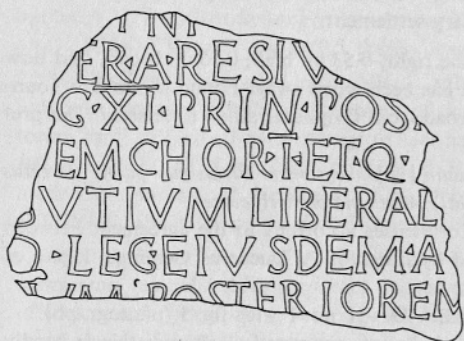 ER·A·RE SIV
G·XI·PRIN·POS
EM CHOR·I·ET·Q·
VTIVM LIBERAL
·LEGE IVSDEM·A
POSTERIOREM